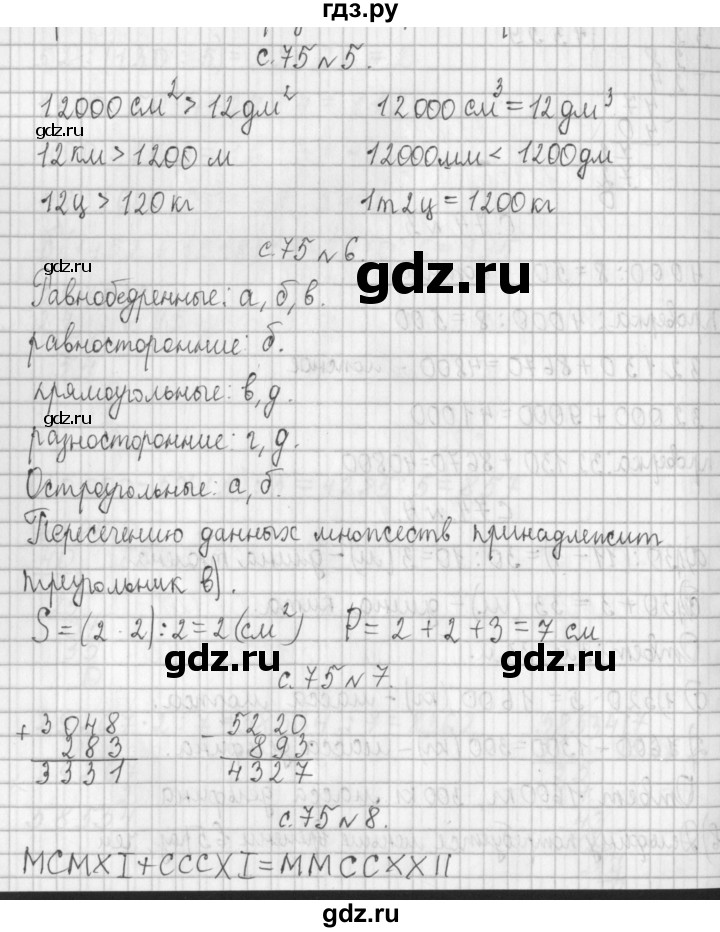 гдз.ру
с.75 №5.
12000 см² > 12 дм² 12000 см³ = 12 дм³
gdz.ru gdz.ru
12 км > 1200 м 12000мм < 1200дм
12ц > 120 кг 1т2ц = 1200 кг
с.75 №6.
gdz.ru
Равнобедренные: а, б, в.
равносторонние: б.
прямоугольные: в, д.
gdz.ru
разносторонние: г, д.
Остроугольные: а, б.
gdz.ru gdz.ru
Пересечению данных множеств принадлежит
треугольник в).
S = (2 · 2) : 2 = 2 (см²) P = 2 + 2 + 3 = 7 см
gdz.ru gdz.ru
с.75 №7.
+ 3048 - 5220
283 893
3331 4327
с.75 №8.
MCMXI + CCCXI = MMCCXXII
gdz.ru
gdz.ru